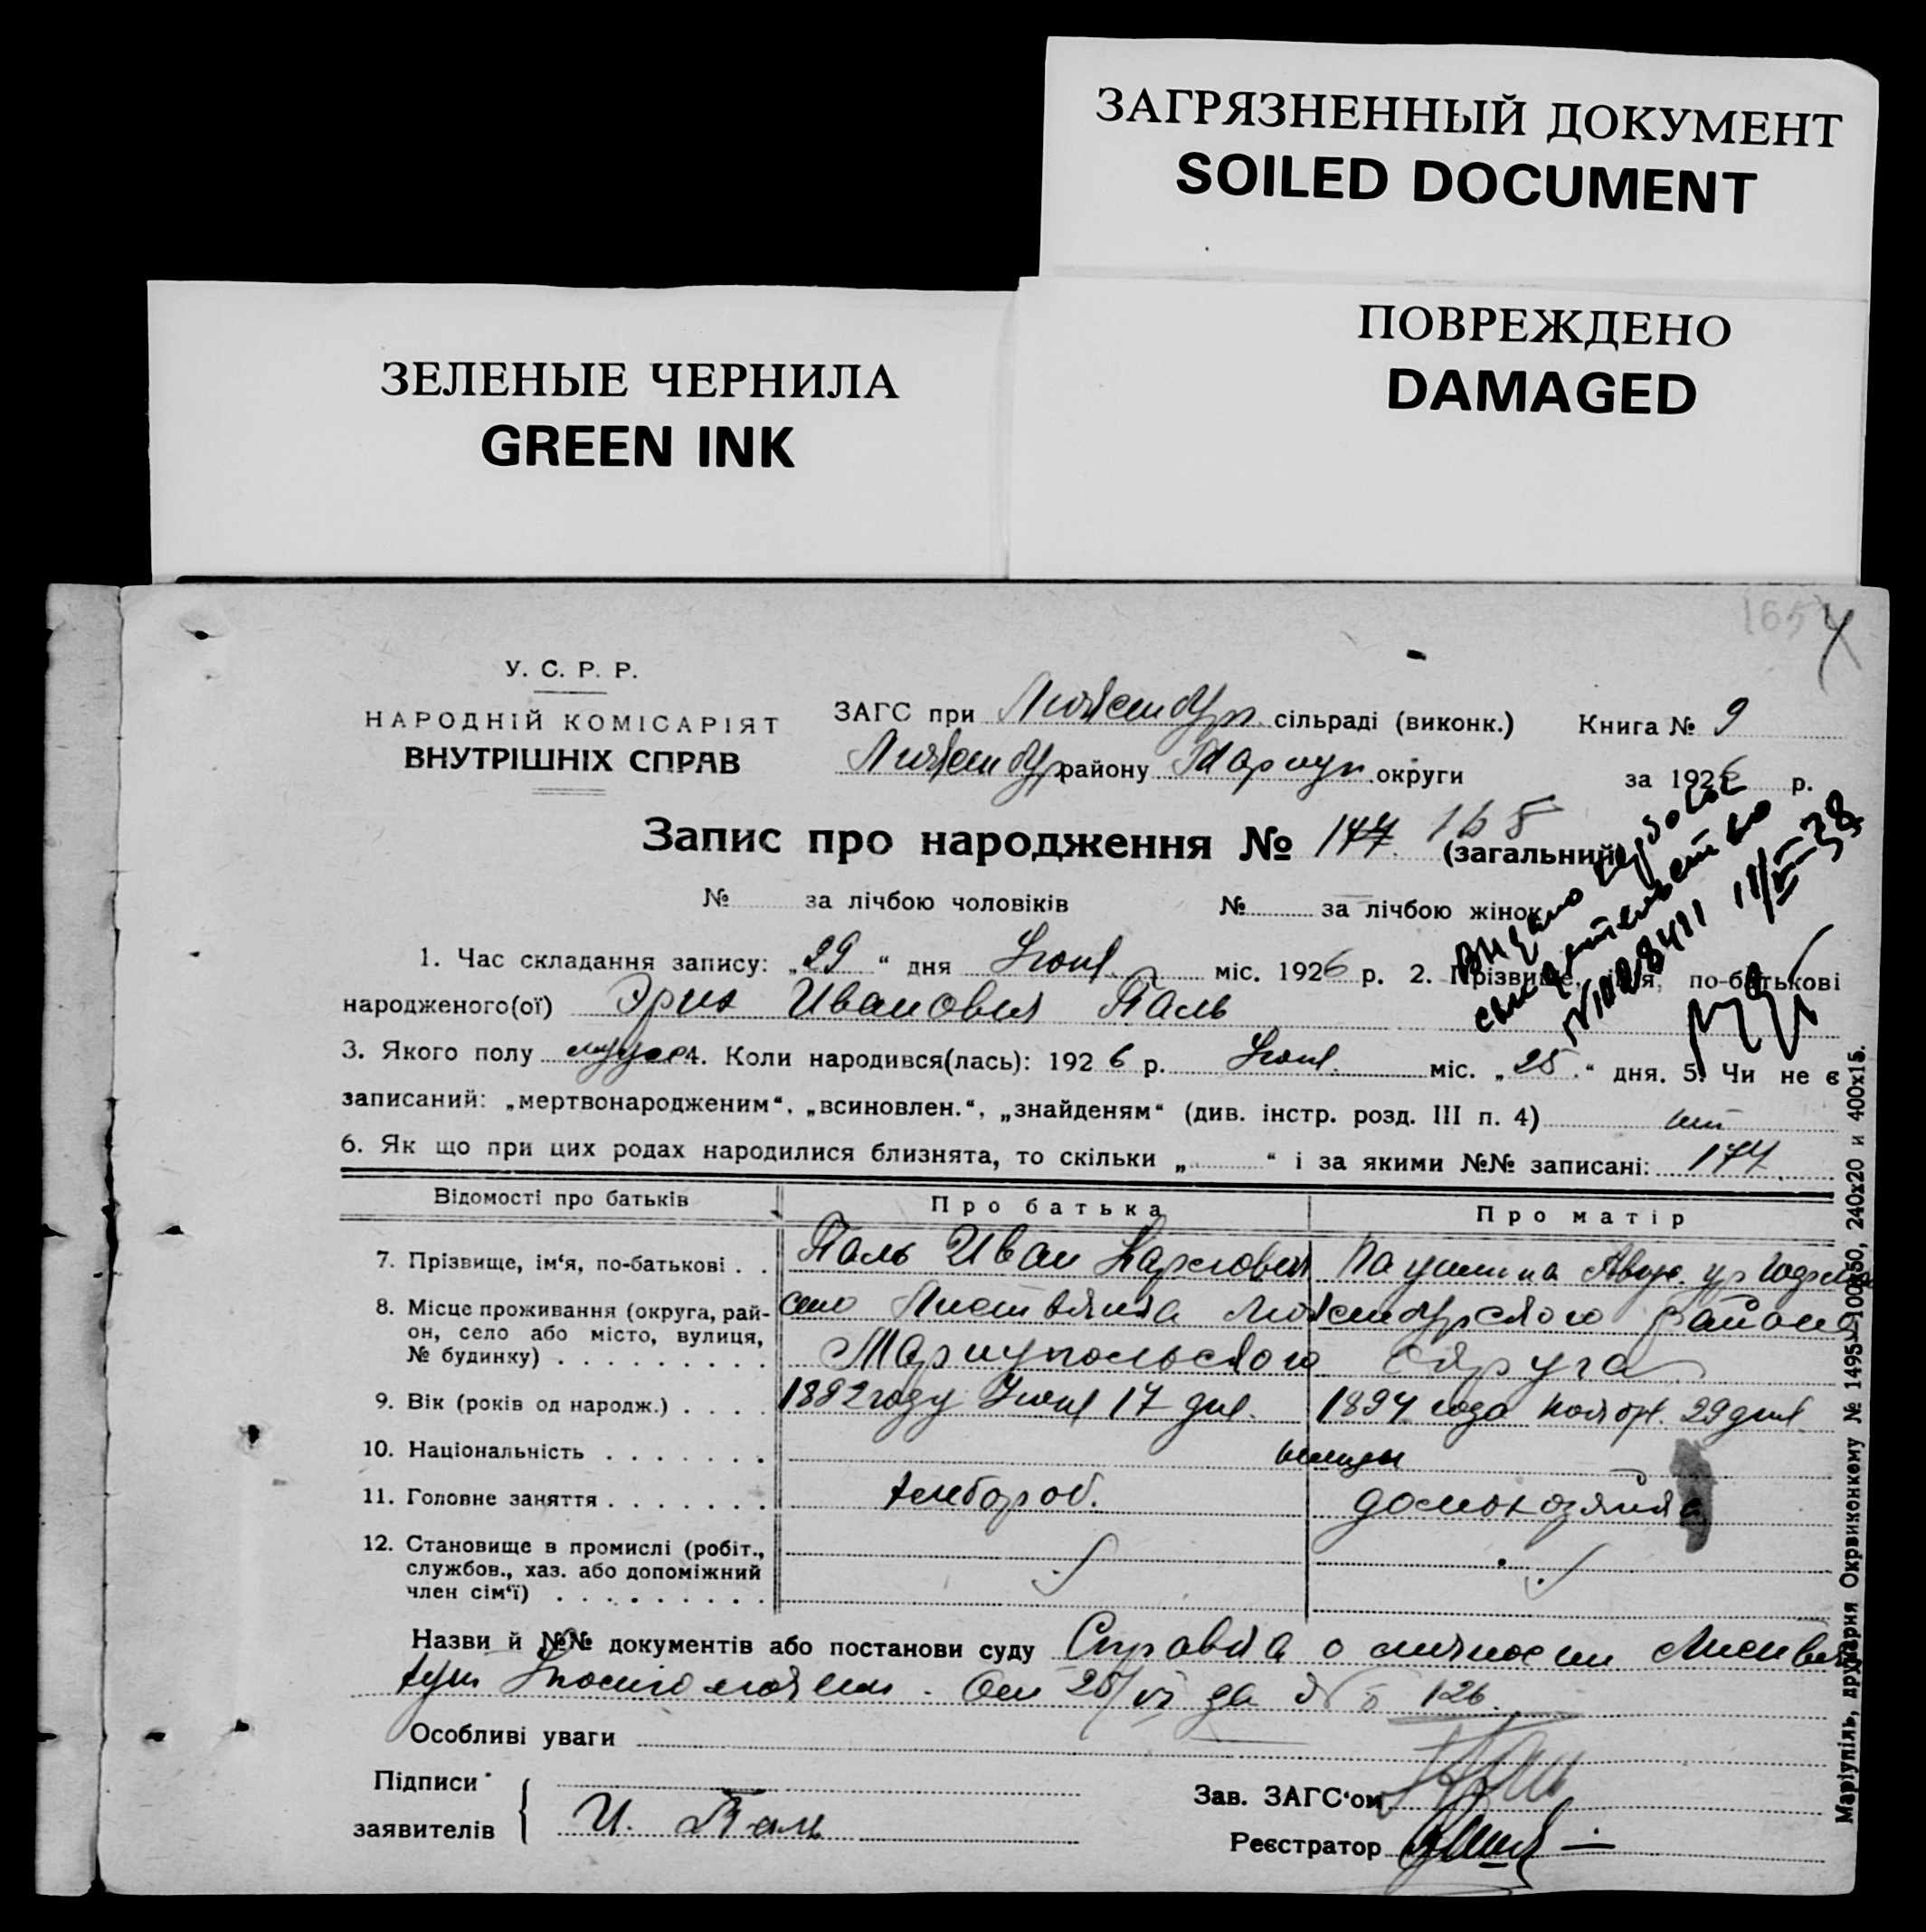 ЗАГРЯЗНЕННЫЙ ДОКУМЕНТ
SOILED DOCUMENT
ПОВРЕЖДЕНО
DAMAGED
ЗЕЛЕНЫЕ ЧЕРНИЛА
GREEN INK
У. С. Р. Р.
НАРОДНІЙ КОМІСАРІЯТ
ВНУТРІШНІХ СПРАВ
ЗАГС при Люксембур. сільраді (виконк.) Книга № 9
Люксембур району Мариуп. округи за 1926 р.
Запис про народження № 177. 165 (загальний)
№ за лічбою чоловіків № за лічбою жінок
Видано
свидетельство
11/VI-38
1. Час складання запису: „29“ дня Июня міс. 1926 р. 2. Прізвище, ім'я, по-батькові
народженого(ої) Эрих Иванович Паль
3. Якого полу мужск 4. Коли народився(лась): 1926 р. Июня. міс. „25.“ дня. 5. Чи не є
записаний: „мертвонародженим“, „всиновлен.“, „знайденям“ (див. інстр. розд. III п. 4) нет
6. Як що при цих родах народилися близнята, то скільки „ “ і за якими №№ записані: 177.
Відомості про батьків Про батька Про матір
7. Прізвище, ім'я, по-батькові . . Паль Иван Карлович
8. Місце проживання (округа, рай-
он, село або місто, вулиця,
№ будинку) . . . . . . . . .
село Листвянка Люксембурского района
Мариупольского округа
9. Вік (років од народж.) . . . . 1892 году Июня 17 дня. 1894 года Ноябр. 29 дня
10. Національність . . . . . . . немцы
11. Головне заняття . . . . . . . хлебороб. домохозяйка
12. Становище в промислі (робіт.,
службов., хаз. або допоміжний
член сім'ї) . . . . . . . . .
Назви й №№ документів або постанови суду Справка о личности
От 28/VI за № 126.
Особливі уваги
Підписи
заявителів И. Паль
Зав. ЗАГС'ом
Реєстратор
Маріупіль, друкарня Окрвиконкому № 1495—100х50, 240х20 и 400х15.